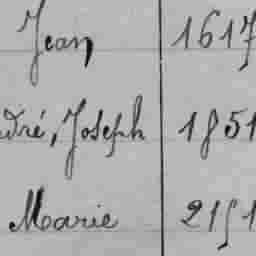 Jean 1617
dré, Joseph 1851
Marie 2151